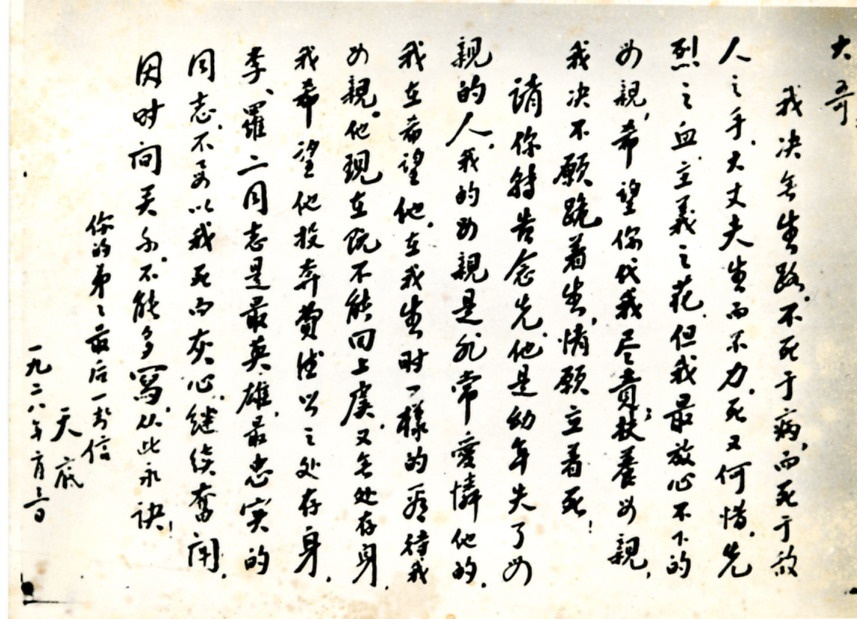 大哥:
我决无生路,不死于病,而死于敌
人之手,大丈夫生而不力,死又何惜,先
烈之血,立义之花,但我最放心不下的
母亲,希望你代我尽责,扶养母亲,
我决不愿跪着生,情愿立着死!
请你转告念先,他是幼年失了母
亲的人,我的母亲是非常爱怜他的,
我在希望他,在我生时一样的看待我
母亲。他现在既不能回上虞,又无处存身,
我希望他投奔费德公之处存身,
李、罗二同志是最英雄,最忠实的
同志,不要以我死而灰心,继续奋闘,
因时间关系,不能多写,从此永诀!
你的弟之最后一封信
天底
一九二八年